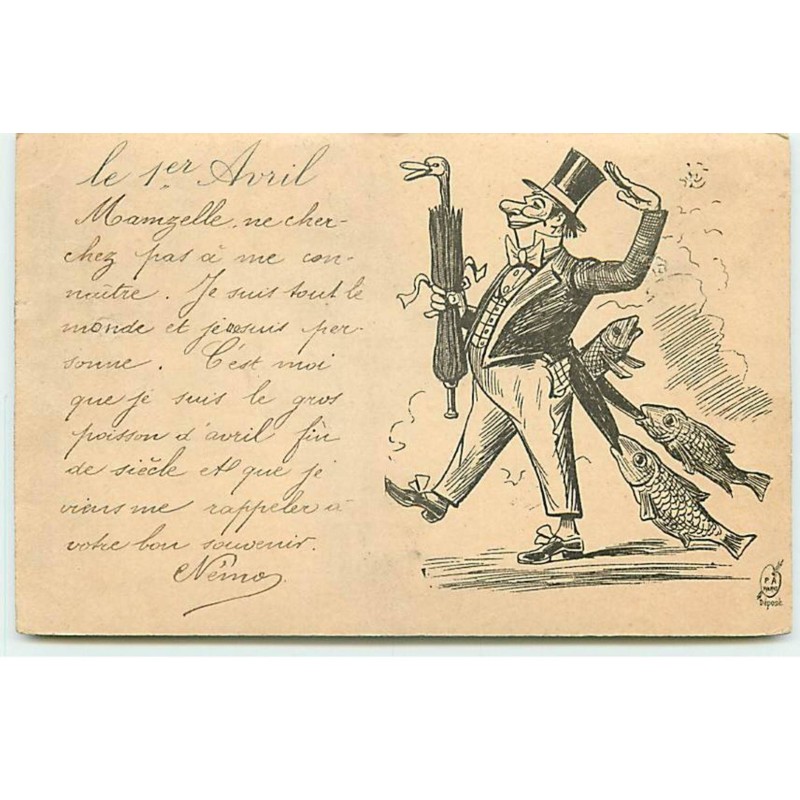 le 1er Avril
Mamzelle, ne cher-
chez pas à me con-
naître. Je suis tout le
monde et je suis per-
sonne. C'est moi
que je suis le gros
poisson d'avril fin
de siècle et que je
viens me rappeler à
votre bon souvenir.
Némo
P. A
PARIS
Déposé